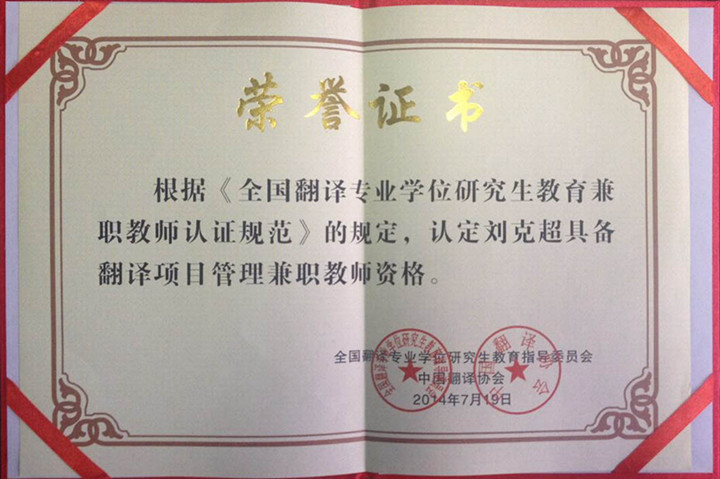 荣誉证书
根据《全国翻译专业学位研究生教育兼
职教师认证规范》的规定，认定刘克超具备
翻译项目管理兼职教师资格。
全国翻译专业学位研究生教育指导委员会
中国翻译协会
2014年7月19日